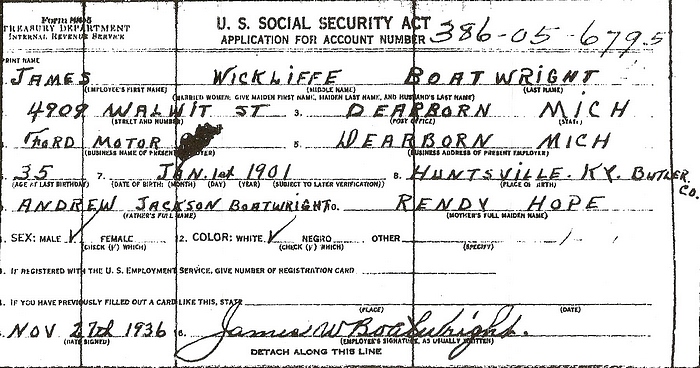 Form SS-5
TREASURY DEPARTMENT
INTERNAL REVENUE SERVICE
U. S. SOCIAL SECURITY ACT
APPLICATION FOR ACCOUNT NUMBER 386-05-6795
PRINT NAME
JAMES WICKLIFFE BOATWRIGHT
(EMPLOYEE'S FIRST NAME) (MIDDLE NAME) (LAST NAME)
(MARRIED WOMEN: GIVE MAIDEN FIRST NAME, MAIDEN LAST NAME, AND HUSBAND'S LAST NAME)
4909 WALWIT ST 3. DEARBORN MICH
(STREET AND NUMBER) (POST OFFICE) (STATE)
FORD MOTOR 5. DEARBORN MICH
(BUSINESS NAME OF PRESENT EMPLOYER) (BUSINESS ADDRESS OF PRESENT EMPLOYER)
35 7. JAN. 1st 1901 8. HUNTSVILLE. KY. BUTLER CO.
(AGE AT LAST BIRTHDAY) (DATE OF BIRTH: (MONTH) (DAY) (YEAR) (SUBJECT TO LATER VERIFICATION) (PLACE OF BIRTH)
ANDREW JACKSON BOATWRIGHT 10. RENDY HOPE
(FATHER'S FULL NAME) (MOTHER'S FULL MAIDEN NAME)
SEX: MALE √ FEMALE 12. COLOR: WHITE √ NEGRO OTHER
(CHECK (√) WHICH) (CHECK (√) WHICH) (SPECIFY)
IF REGISTERED WITH THE U. S. EMPLOYMENT SERVICE, GIVE NUMBER OF REGISTRATION CARD
IF YOU HAVE PREVIOUSLY FILLED OUT A CARD LIKE THIS, STATE
(PLACE) (DATE)
NOV 27th 1936 James W Boatwright.
(DATE SIGNED) (EMPLOYEE'S SIGNATURE, AS USUALLY WRITTEN)
DETACH ALONG THIS LINE